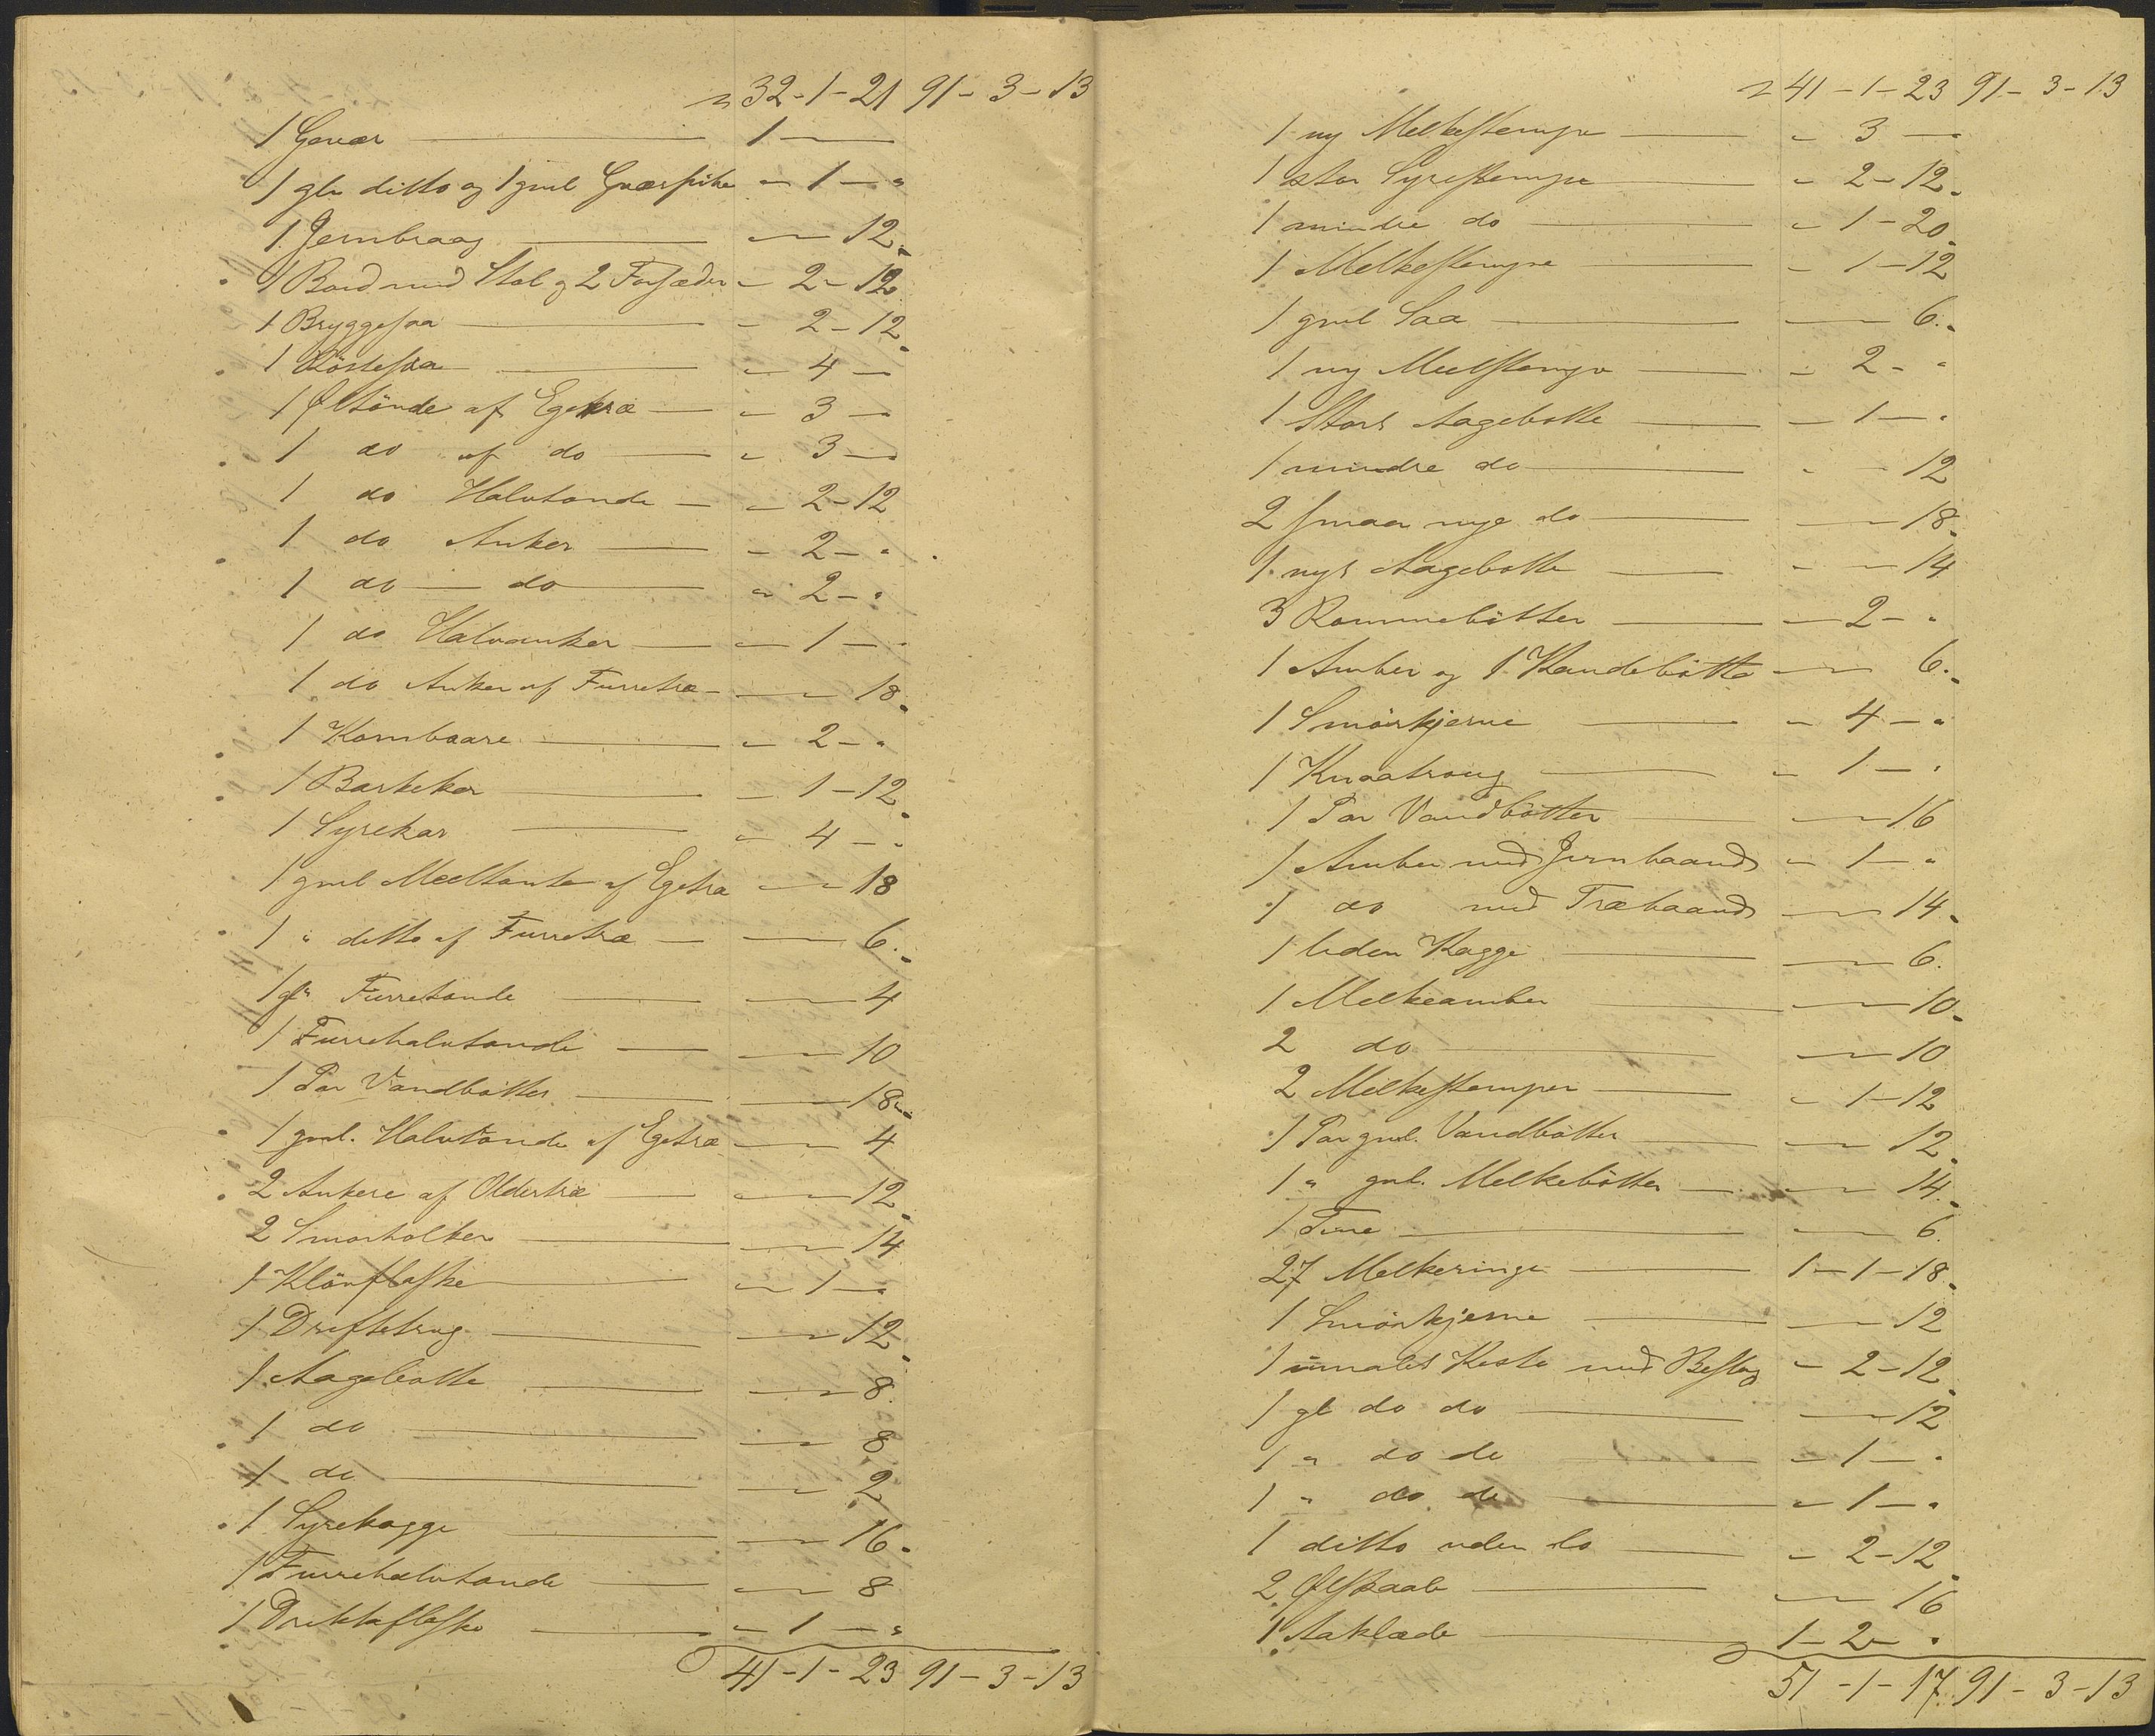 32-1-21 91-3-13
1 Gevær — 1 —
1 gln ditto og 1 gml - 1 - "
1 Jernbraag — 12
1 Bord med Stol og 2 Forsæder - 2-12
1 Bryggesaa — - 2-12
1 — - 4 —
1 Øltönde af Egetræ — - 3 —
1 do af do — - 3 —
1 do Halvtønde — - 2-12
1 do Anker — - 2 - "
1 do — do — - 2 - "
1 do Halvanker — - 1 — "
1 do Anker af Furretræ — 18
1 Kornbaare — - 2 - "
1 Barkekar — - 1-12
1 Syrekar — - 4 - "
1 gml Meeltønde af Egetræ — 18
1 " ditto af Furretræ — 6
1 gl Furretønde — 4
1 Furrehalvtønde — 10
1 Par Vandbötter — 18
1 gml. Halvtønde af Egetræ — 4
2 Ankere af Oldertræ — 12
2 Smørholker — 14
1 Klövflaske — - 1 - "
1 Driftetrug — 12
1 Aagebötte — 8
1 do — 8
1 do — 2
1 Syrekagge — 16
1 Furrehalvtønde — 8
1 Drikkeflaske — - 1 - "
41-1-23 91-3-13
41-1-23 91-3-13
1 ny Melkestempe — - 3 —
1 stor Syrestempe — - 2-12
1 mindre do — - 1-20
1 Melkestempe — - 1-12
1 gml Saa — 6
1 ny Meelstempe — - 2 - "
1 Stor Aagebotte — - 1 - "
1 mindre do — 12
2 smaa nye do — 18
1 nye Aagebotte — 14
3 Rømmebötter — - 2 - "
1 Amber og 1 Kandebötte — 6
1 Smörkjerne — - 4 - "
1 Knaatroug — - 1 - "
1 Par Vandbötter — 16
1 Amber med Jernbaand - 1 - "
1 do med Træbaand — 14
1 liden Kagge — 6
1 Melkeamber — 10
2 do — 10
2 Melkestemper — - 1-12
1 Par gml. Vandbötter — 12
1 " gml. Melkebötter — 14
1 Tine — 6
27 Melkeringe — 1-1-18
1 Smörkjerne — 12
1 umalet Kiste med Beslag - 2-12
1 gl do do — 12
1 " do do — - 1 - "
1 " do do — - 1 - "
1 ditto uden do — - 2-12
2 Ølskaale — 16
1 Aaklæde — 1-2- "
51-1-17 91-3-13